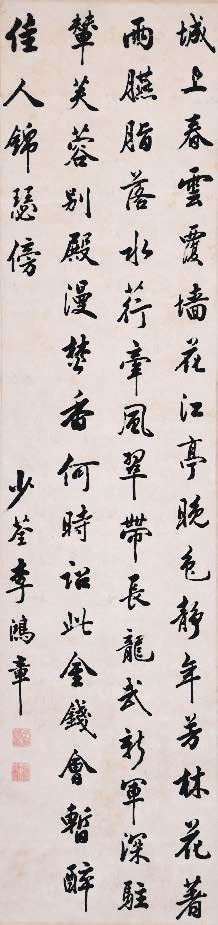 城上春雲覆墻花江亭晚色靜年芳林花著
雨臙脂落水荇牽風翠帶長龍武新軍深駐
輦芙蓉別殿漫焚香何時詔此金錢會暫醉
佳人錦瑟傍
少荃李鴻章